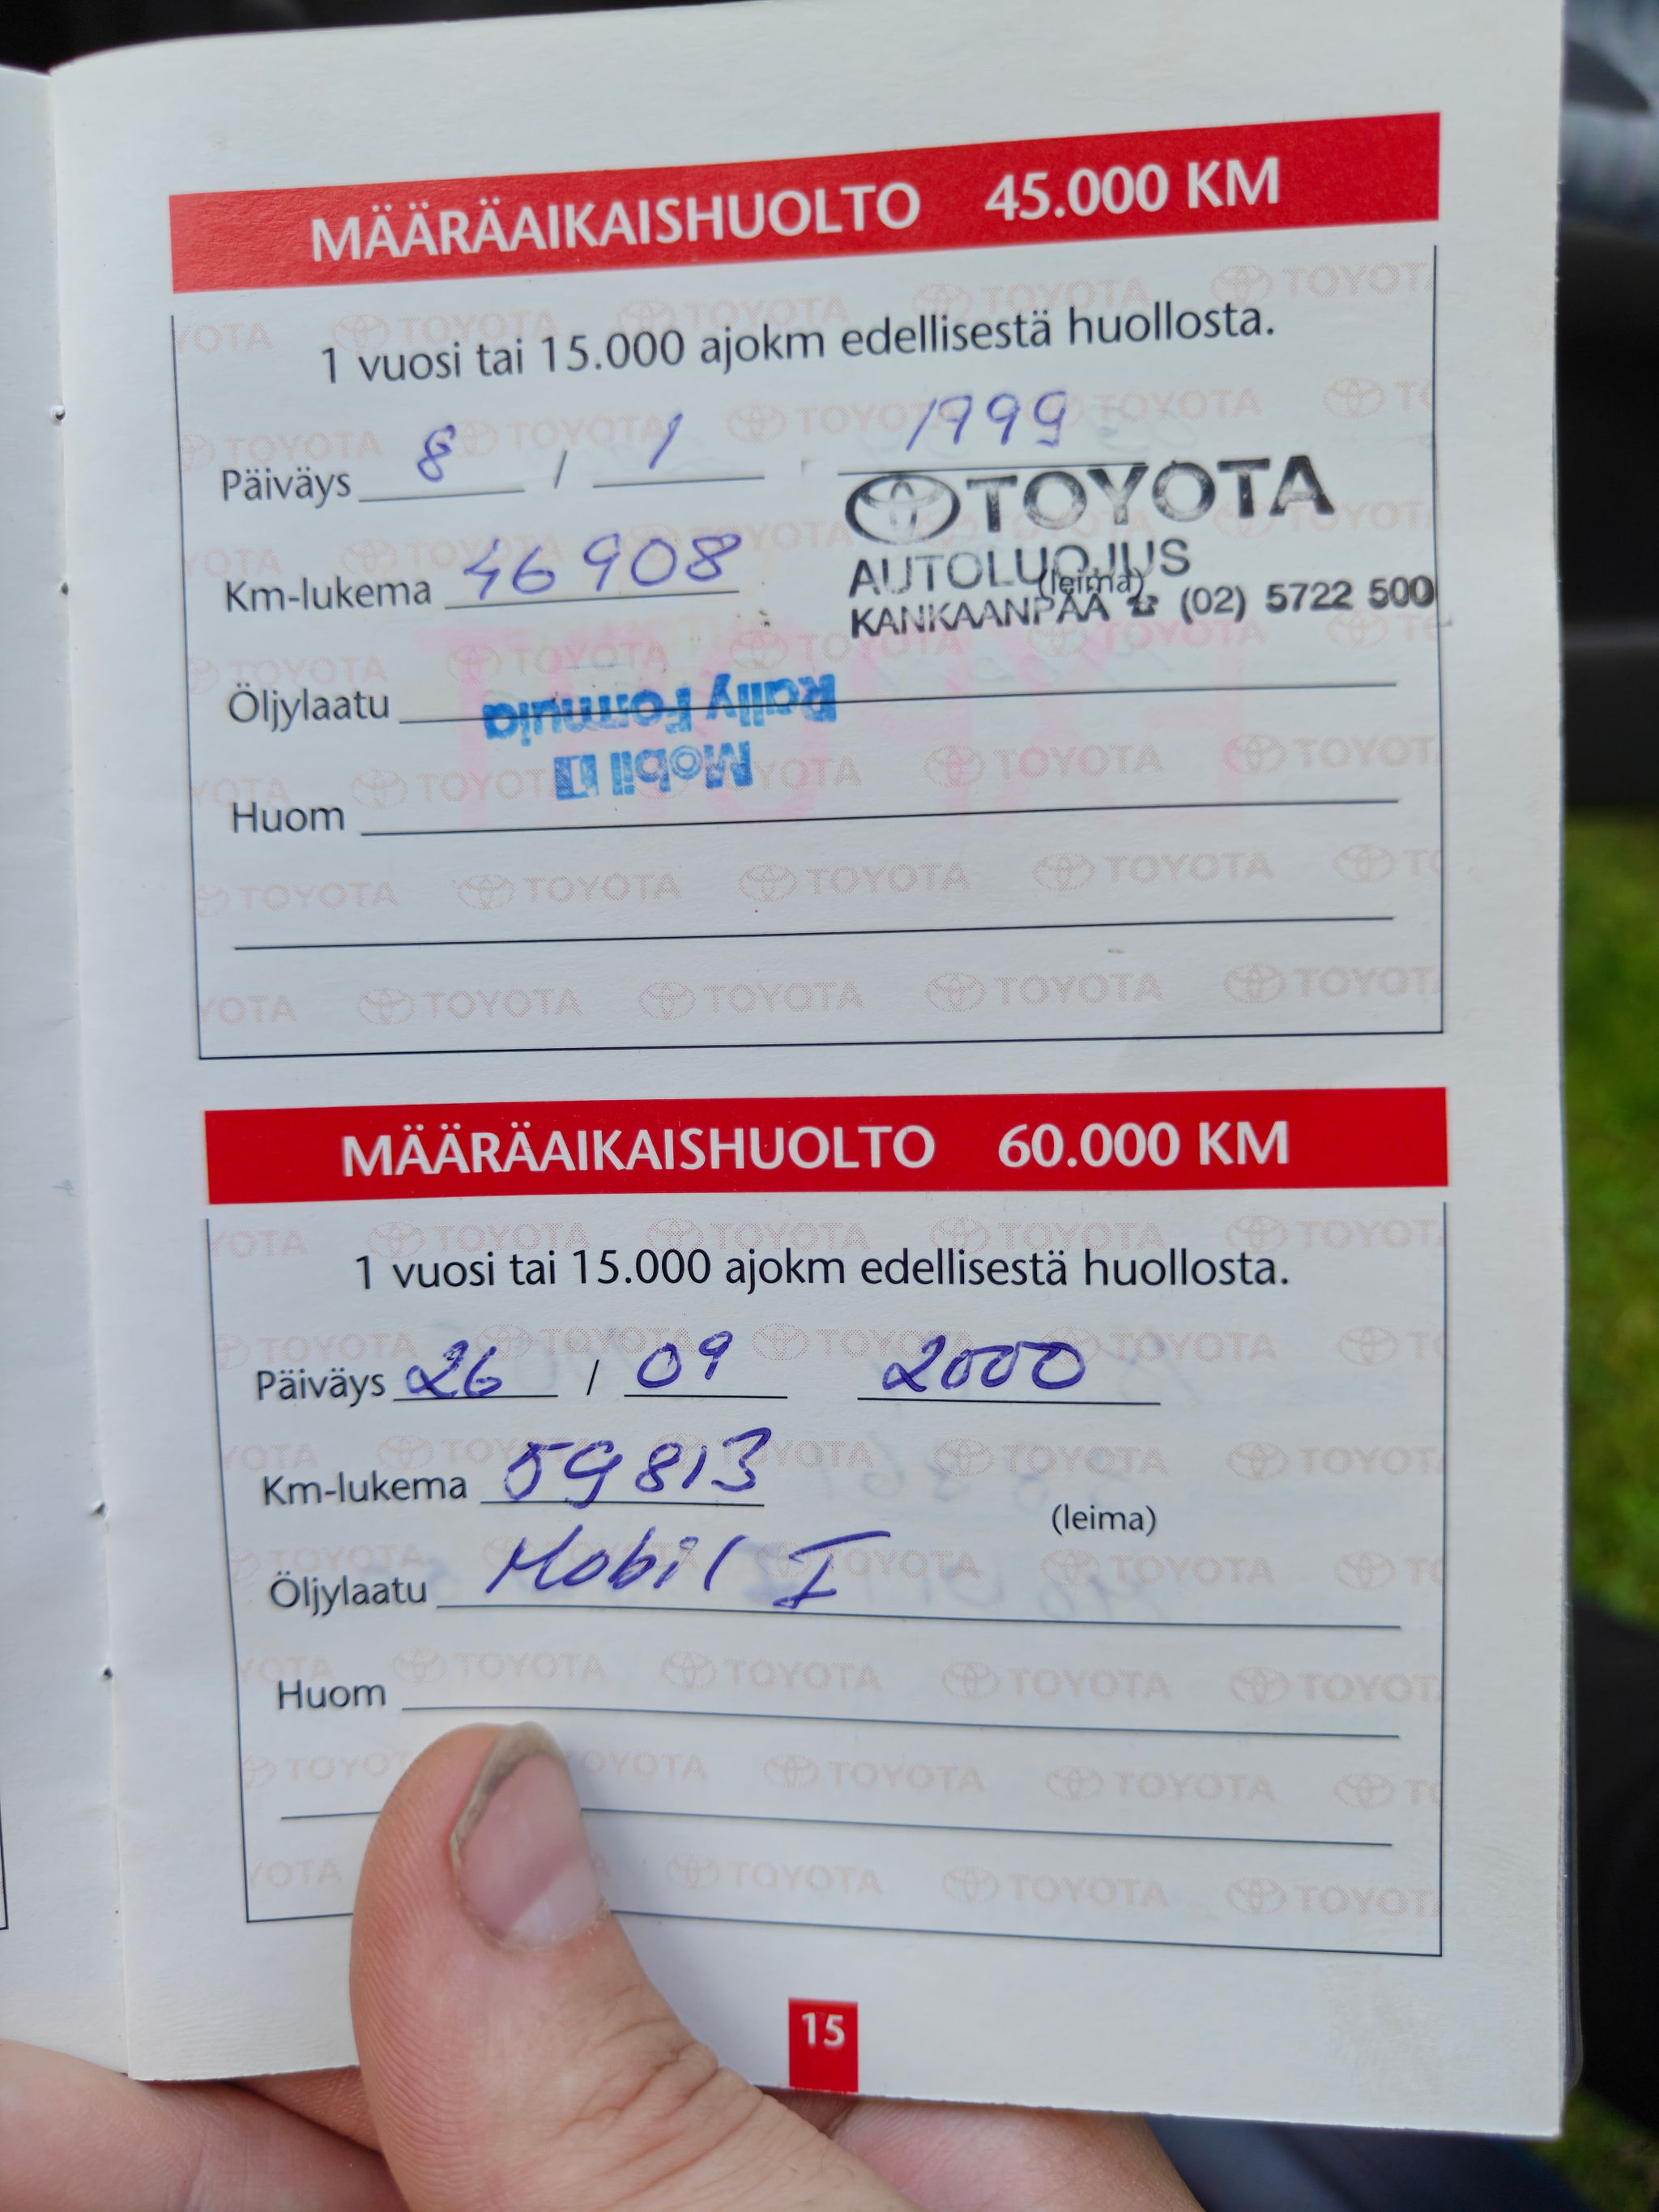 MÄÄRÄAIKAISHUOLTO 45.000 KM
1 vuosi tai 15.000 ajokm edellisestä huollosta.
Päiväys 8 / 1 1999
TOYOTA
Km-lukema 46 908
AUTOLUOJUS
(leima)
KANKAANPÄÄ ☎ (02) 5722 500
Öljylaatu
Mobil 1
Rally Formula
Huom
MÄÄRÄAIKAISHUOLTO 60.000 KM
1 vuosi tai 15.000 ajokm edellisestä huollosta.
Päiväys 26 / 09 2000
Km-lukema 59813
(leima)
Öljylaatu Mobil I
Huom
15